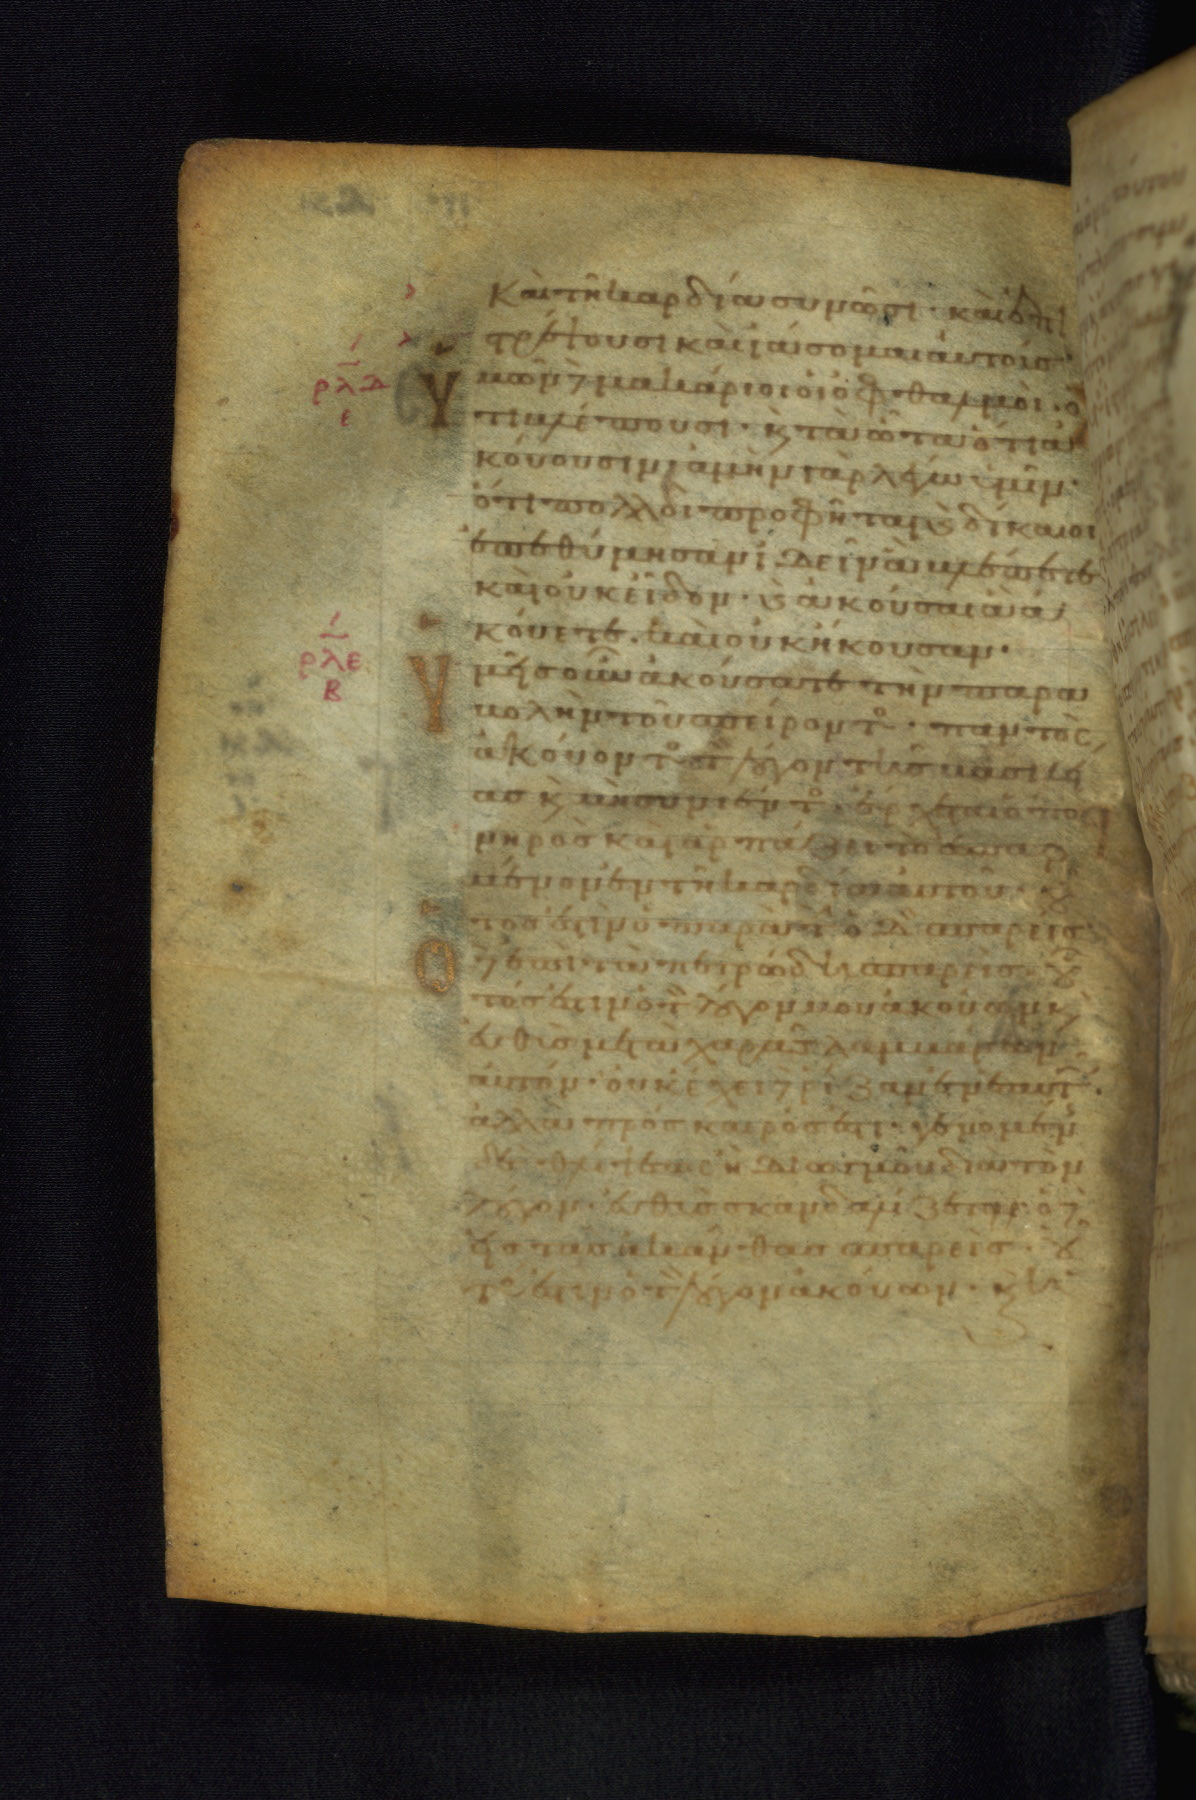 καὶ τῆ καρδία συνῶσι · καὶ ἐπι
στρέψουσι καὶ ἰάσομαι αὐτοίς·
ρλδ
ε
Υ μῶν δὲ μακάριοι οἱ ὀφθαλμοὶ · ὅ
τι βλέπουσι · κ τὰ ὦτα ὅτι ἀ
κούουσιν ἀμὴν γὰρ λέγω ὑμῖν·
ότι πολλοὶ προφῆται κ δίκαιοι
ἐπεθύμησαν ἰδεῖν ἃ βλέπετε
καὶ οὐκ εἶδον · κ ἀκούσαι ἃ ἀ
κούετε · καὶ οὐκ ἤκουσαν ·
ρλε
β
Υ μεῖς οὖν ἀκούσατε τὴν παρα
βολὴν τοῦ σπείροντο · παντὸς
ἀκούοντο τ λόγον τῆς βασιλεί
ας κ μὴ συνιέντο · έρχεται ὁ πο
νηρὸς καὶ ἁρπάζει τὸ ἐσπαρ
μένον ἐν τῆ καρδία αὐτοῦ · οὗ
τος ἐστὶν ὁ παρὰ τ ὁδ σπαρείς
Ο δὲ ἐπὶ τὰ πετρώδη σπαρείς · οὗ
τός ἐστιν ὁ τ λόγον μου ἀκούων κ
εὐθὺς μετὰ χαρᾶς λαμβάνων
αὐτόν · οὐκ ἔχει δὲ ῥίζαν ἐν ἑαυτ ·
ἀλλὰ πρόσκαιρός ἐστι · γενομέν
δὲ θλίψεως ἢ διωγμοῦ διὰ τὸν
λόγον · εὐθὺς σκανδαλίζεται · ὁ δὲ
εἰς τὰς ἀκάνθας σπαρεὶς · οὗ
το ἐστιν ὁ τ λόγον ἀκούων · κ